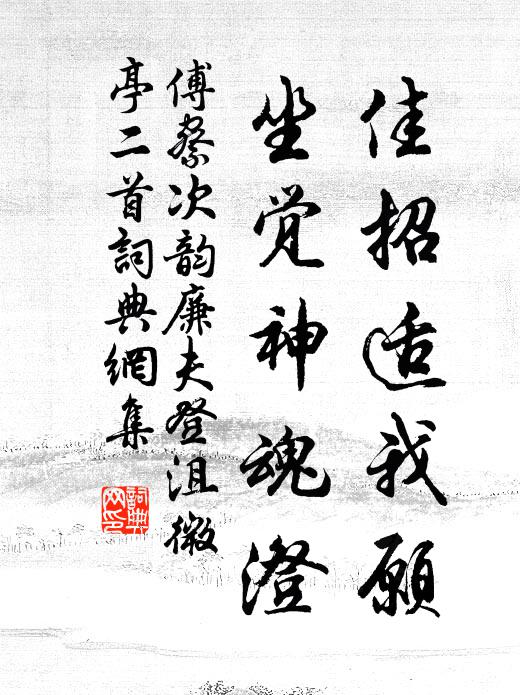 佳招适我愿
坐觉神魂澄
傅察次韵廉夫登沮徽
亭二首詞典網集
詞典网印